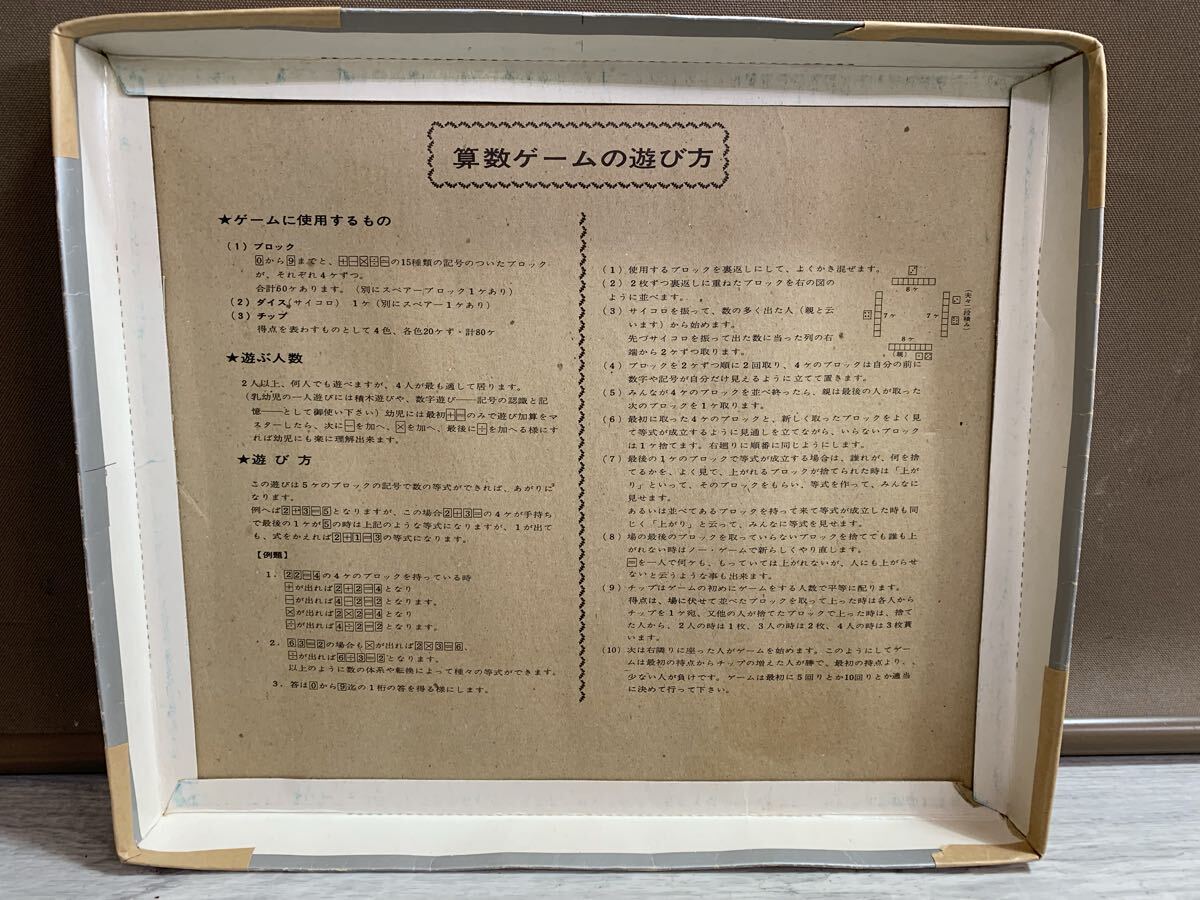 算数ゲームの遊び方
★ゲームに使用するもの
(1) ブロック
0から9までと、+−×÷=の15種類の記号のついたブロック
が、それぞれ4ヶずつ。
合計60ヶあります。(別にスペアーブロック1ヶあり)
(2) ダイス(サイコロ) 1ヶ(別にスペアー1ヶあり)
(3) チップ
得点を表わすものとして4色、各色20ヶず・計80ヶ
★遊ぶ人数
2人以上、何人でも遊べますが、4人が最も適して居ります。
(乳幼児の一人遊びには積木遊びや、数字遊び──記号の認識と記
憶──として御使い下さい)幼児には最初+=のみで遊び加算をマ
スターしたら、次に−を加へ、×を加へ、最後に÷を加へる様にす
れば幼児にも楽に理解出来ます。
★遊び方
この遊びは5ヶのブロックの記号で数の等式ができれば、あがりに
なります。
例へば2+3=5となりますが、この場合2+3=の4ヶが手持ち
で最後の1ヶが5の時は上記のような等式になりますが、1が出て
も、式をかえれば2+1=3の等式になります。
【例題】
1. 22=4の4ヶのブロックを持っている時
+が出れば2+2=4となり
−が出れば4−2=2となります。
×が出れば2×2=4となり
÷が出れば4÷2=2となります。
2. 63=2の場合も×が出れば2×3=6、
÷が出れば6÷3=2となります。
以上のように数の体系や転換によって種々の等式ができます。
3. 答は0から9迄の1桁の答を得る様にします。
(1) 使用するブロックを裏返しにして、よくかき混ぜます。
(2) 2枚ずつ裏返しに重ねたブロックを右の図の
ように並べます。
(3) サイコロを振って、数の多く出た人(親と云
います)から始めます。
先づサイコロを振って出た数に当った列の右
端から2ヶずつ取ります。
8ヶ
7ヶ
7ヶ
8ヶ
(親)
(夫々二段積み)
(4) ブロックを2ヶずつ順に2回取り、4ヶのブロックは自分の前に
数字や記号が自分だけ見えるように立てて置きます。
(5) みんなが4ヶのブロックを並べ終ったら、親は最後の人が取った
次のブロックを1ヶ取ります。
(6) 最初に取った4ヶのブロックと、新しく取ったブロックをよく見
て等式が成立するように見通しを立てながら、いらないブロック
は1ヶ捨てます。右廻りに順番に同じようにします。
(7) 最後の1ヶのブロックで等式が成立する場合は、誰れが、何を捨
てるかを、よく見て、上がれるブロックが捨てられた時は「上が
り」といって、そのブロックをもらい、等式を作って、みんなに
見せます。
あるいは並べてあるブロックを持って来て等式が成立した時も同
じく「上がり」と云って、みんなに等式を見せます。
(8) 場の最後のブロックを取っていらないブロックを捨てても誰も上
がれない時はノー・ゲームで新らしくやり直します。
=を一人で何ヶも、もっていては上がれないが、人にも上がらせ
ないと云うような事も出来ます。
(9) チップはゲームの初めにゲームをする人数で平等に配ります。
得点は、場に伏せて並べたブロックを取って上った時は各人から
チップを1ヶ宛、又他の人が捨てたブロックで上った時は、捨て
た人から、2人の時は1枚、3人の時は2枚、4人の時は3枚貰
います。
(10) 次は右隣りに座った人がゲームを始めます。このようにしてゲー
ムは最初の持点からチップの増えた人が勝で、最初の持点より、
少ない人が負けです。ゲームは最初に5回りとか10回りとか適当
に決めて行って下さい。